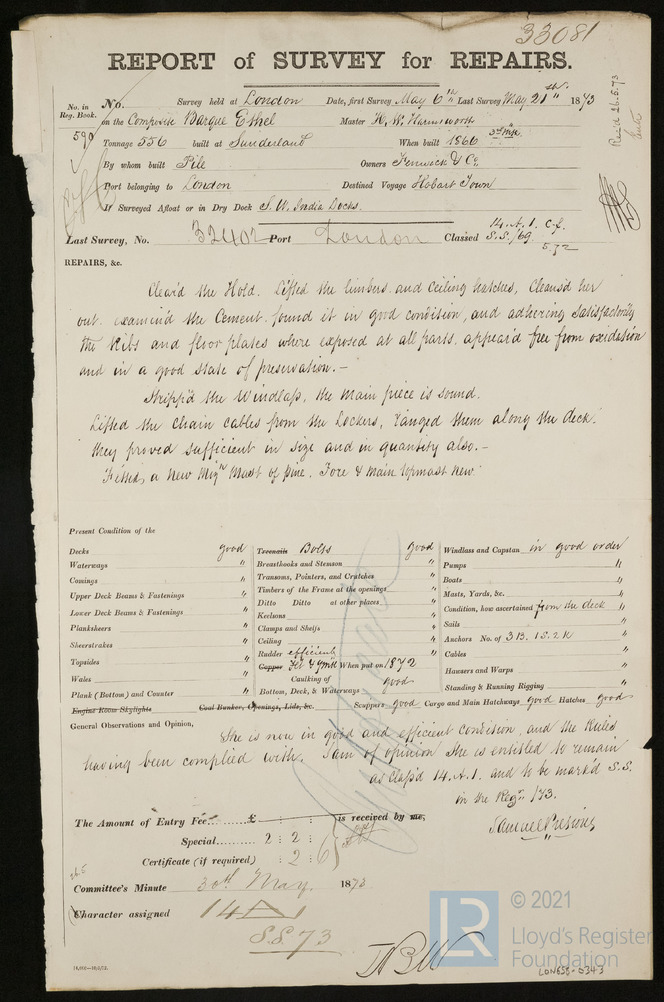 33081
REPORT of SURVEY for REPAIRS.
Rec'd 26.5.73
No. in Reg. Book. No. Survey held at London Date, first Survey May 6th Last Survey May 21st 1873
590 on the Composite Barque Ethel Master H. W. Harmsworth
Tonnage 556 built at Sunderland When built 1866 3rd Mo
By whom built Pile Owners Fenwick & Co
Port belonging to London Destined Voyage Hobart Town
If Surveyed Afloat or in Dry Dock S. W. India Docks.
Last Survey, No. 32402 Port London Classed 14.A.1. C.f.
S.S./69. 5,72
REPAIRS, &c.
Clear'd the Hold. Lifted the limbers and Ceiling hatches, Cleans'd her
out. examin'd the Cement, found it in good condition, and adhering satisfactorily
the Ribs and floor plates where exposed at all parts, appear'd free from oxidation
and in a good state of preservation. –
Stripp'd the Windlass, the main piece is sound.
Lifted the Chain Cables from the Lockers, ranged them along the deck.
they proved sufficient in size and in quantity also. –
Fitted a New Mizn Mast of pine. Fore & Main topmast new
Present Condition of the
Decks good
Waterways "
Comings "
Upper Deck Beams & Fastenings "
Lower Deck Beams & Fastenings "
Planksheers "
Sheerstrakes "
Topsides "
Wales "
Plank (Bottom) and Counter "
Engine Room Skylights
Treenails Bolts good
Breasthooks and Stemson "
Transoms, Pointers, and Crutches "
Timbers of the Frame at the openings "
Ditto Ditto at other places "
Keelsons "
Clamps and Shelfs "
Ceiling "
Rudder efficient "
Copper Felt & YMtl When put on 1872
Caulking of Bottom, Deck, & Waterways good
Coal Bunker, Openings, Lids, &c.
Windlass and Capstan in good order
Pumps "
Boats "
Masts, Yards, &c. "
Condition, how ascertained from the deck "
Sails "
Anchors No. of 3B. 1S. 2K "
Cables "
Hawsers and Warps "
Standing & Running Rigging "
Scuppers good Cargo and Main Hatchways good Hatches good
General Observations and Opinion,
She is now in good and efficient condition, and the Rules
having been complied with. I am of opinion She is entitled to remain
as class'd 14.A.1. and to be mark'd S.S.
in the Regr. /73.
Samuel Presious
The Amount of Entry Fee £ : : is received by me,
Special 2 : 2 :
Certificate (if required) : 2 : 6
26.5
Committee's Minute 30th May 1873
Character assigned 14 A 1
S.S. 73
LR
© 2021
Lloyd's Register
Foundation
LON658-0343